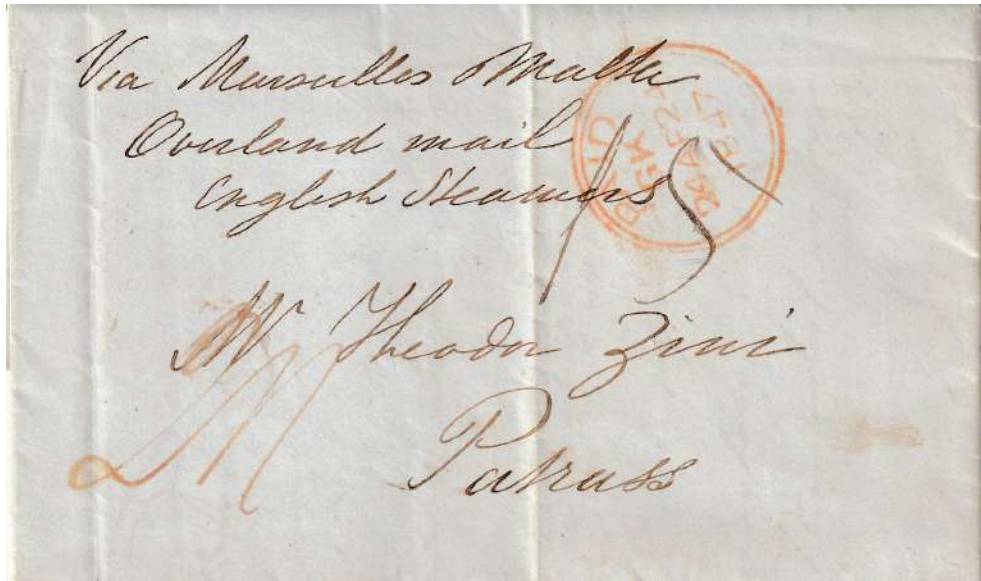 Via Marseilles & Malta
Overland mail
English Steamers
PAID
1847
15
Mr Theodor Zini
Patrass